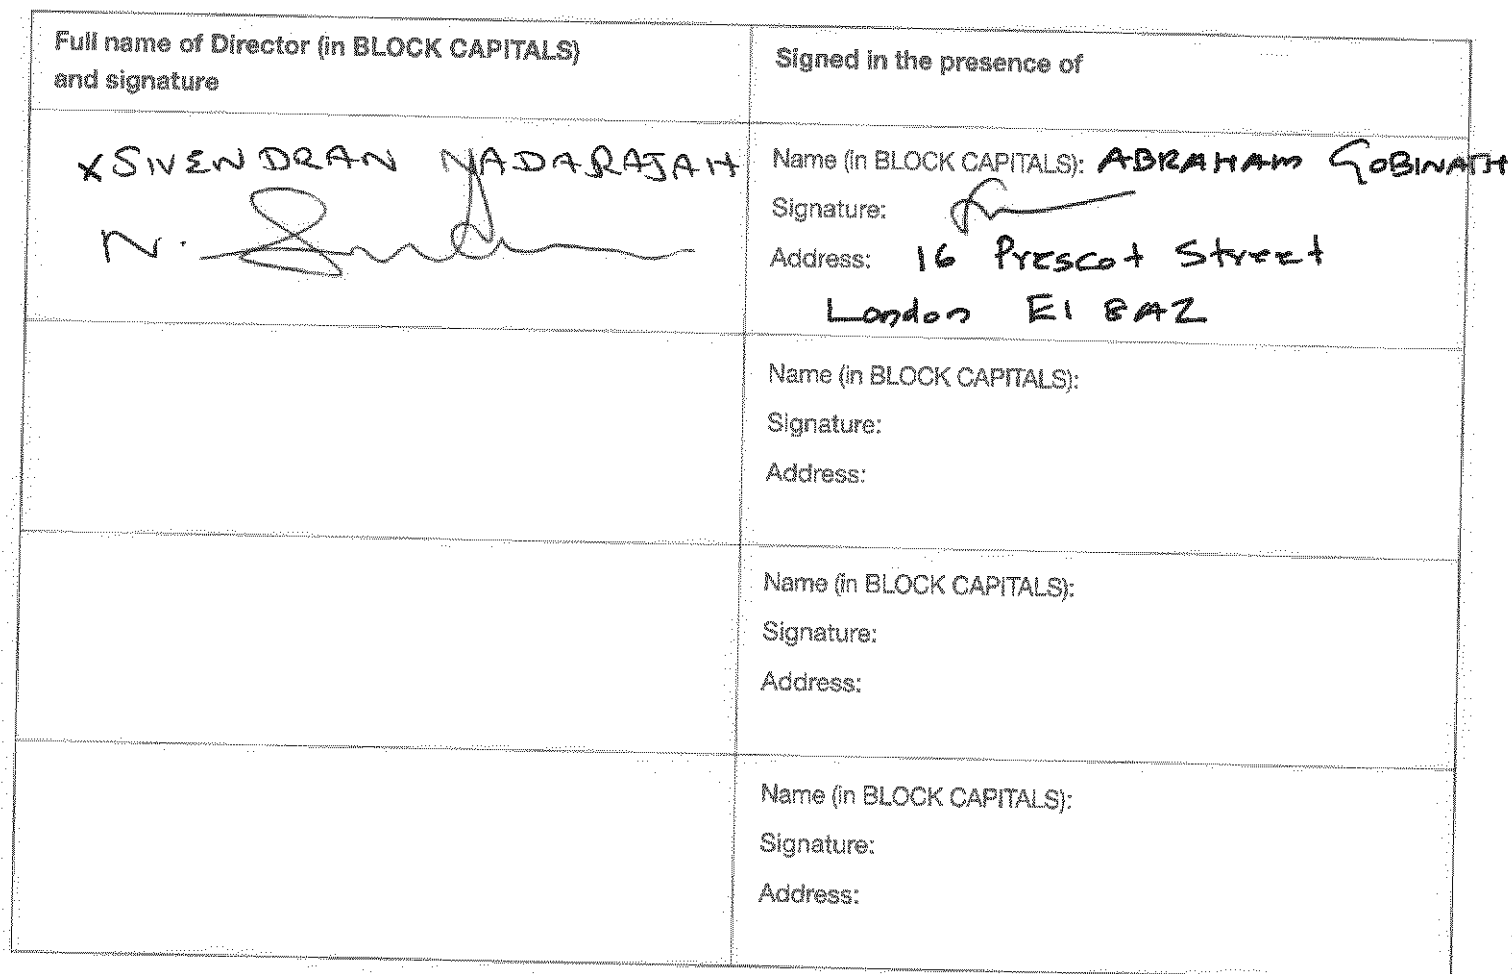 Full name of Director (in BLOCK CAPITALS)
and signature
Signed in the presence of
x SIVENDRAN NADARAJAH
N.
Name (in BLOCK CAPITALS): ABRAHAM GOBINATH
Signature:
Address: 16 Prescot Street
London E1 8AZ
Name (in BLOCK CAPITALS):
Signature:
Address:
Name (in BLOCK CAPITALS):
Signature:
Address:
Name (in BLOCK CAPITALS):
Signature:
Address: